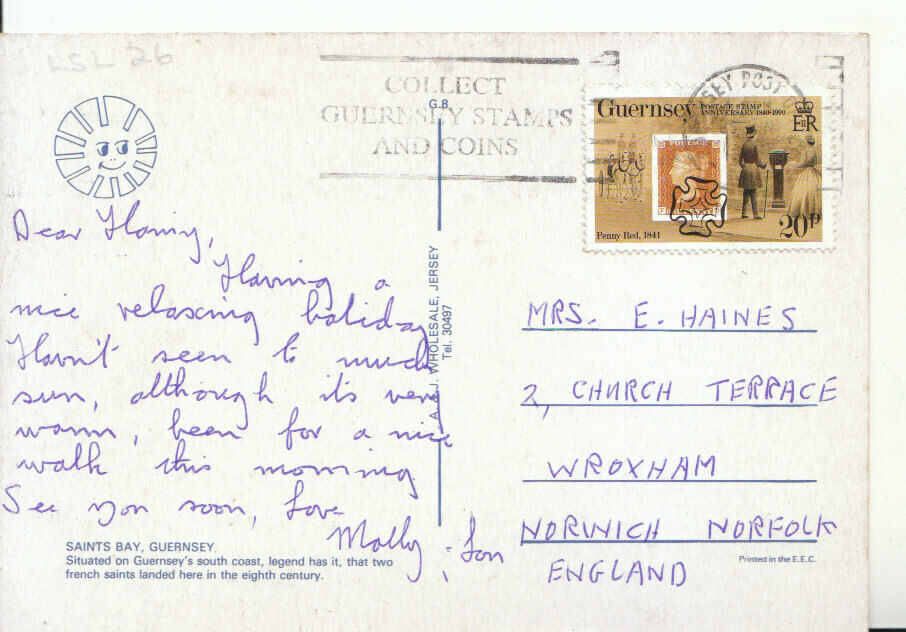 LSL 26
COLLECT
GUERNSEY STAMPS
AND COINS
G.8
SEY POST
Guernsey
POSTAGE STAMP
ANNIVERSARY 1840-1990
EIIR
POSTAGE
Penny Red, 1841
20p
Dear
Having a
nice relaxing holiday
Havn't seen to much
sun, although its very
warm, been for a nice
walk this morning
See you son, Love
Molly
MRS. E. HAINES
2, CHURCH TERRACE
WROXHAM
NORWICH NORFOLK
ENGLAND
WHOLESALE, JERSEY
Tel. 30497
SAINTS BAY, GUERNSEY
Situated on Guernsey's south coast, legend has it, that two
french saints landed here in the eighth century.
Printed in the E.E.C.